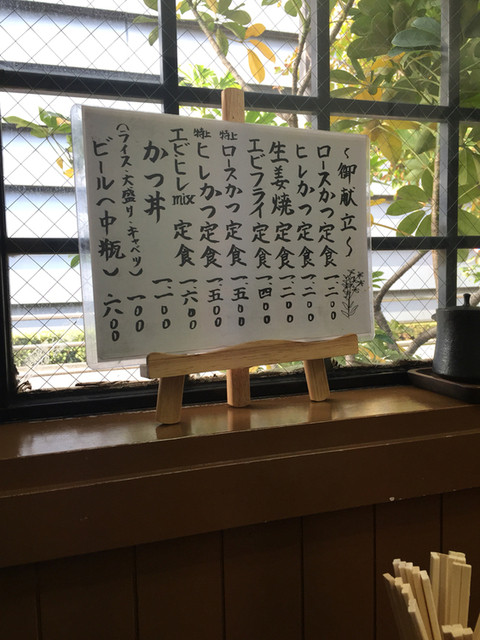 〜御献立〜
ロースかつ定食 一.二〇〇
ヒレかつ定食 一.二〇〇
生姜焼定食 一.二〇〇
エビフライ定食 一.四〇〇
特上ロースかつ定食 一.五〇〇
特上ヒレかつ定食 一.五〇〇
エビ・ヒレmix定食 一.六〇〇
かつ丼
(ライス・大盛り・キャベツ) 一〇〇
ビール(中瓶) 六〇〇